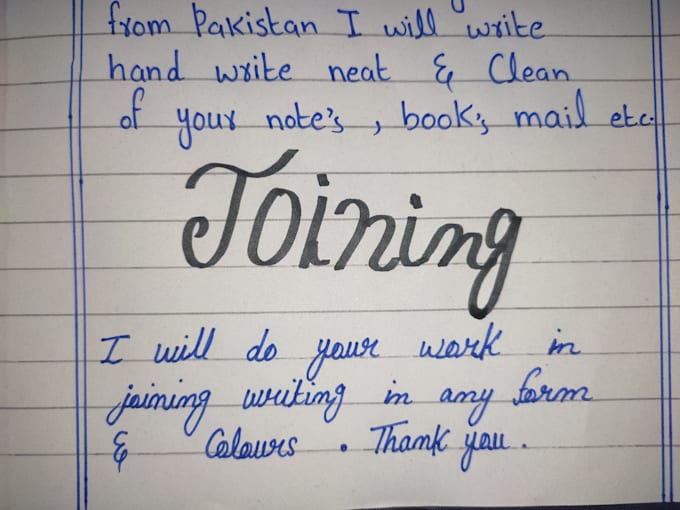 from Pakistan I will write
hand write neat & Clean
of your note's , book's mail etc.
Joining
I will do your work in
joining writing in any form
& Colours . Thank you .